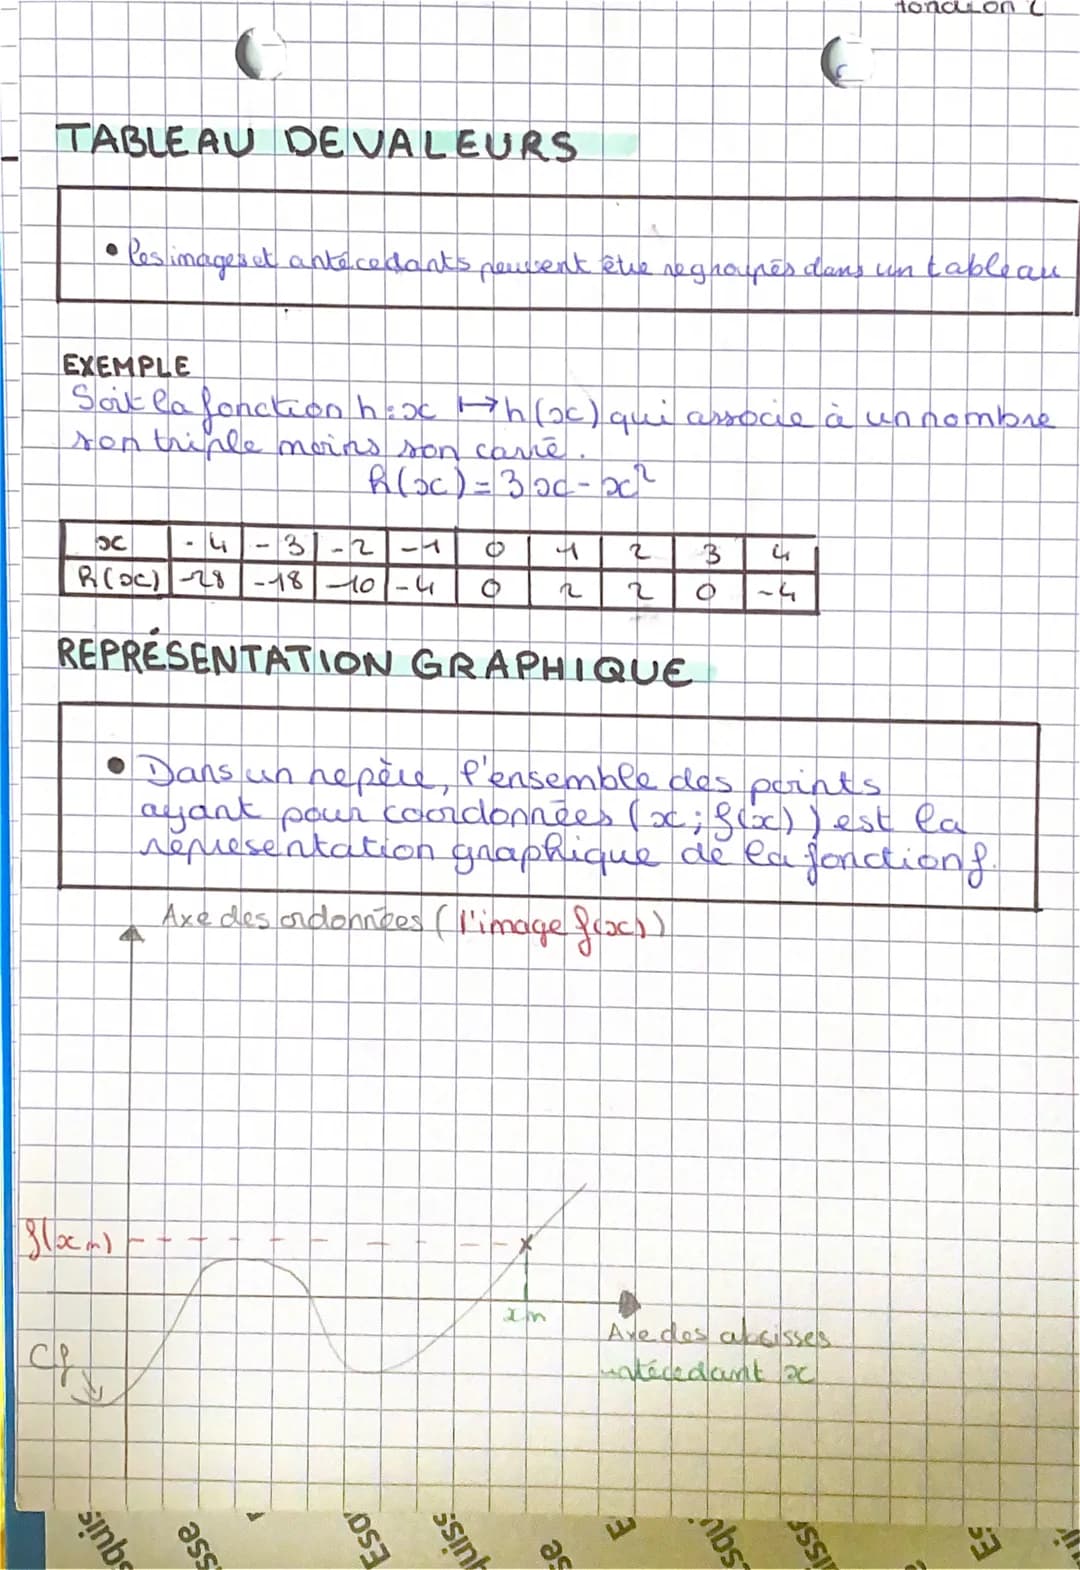 fonction
TABLEAU DE VALEURS
• les images et antécedants peuvent être regroupés dans un tableau
EXEMPLE
Soit la fonction h : x ↦ h(x) qui associe à un nombre
son triple moins son carré.
h(x) = 3x - x²
x -4 -3 -2 -1 0 1 2 3 4
h(x) -28 -18 -10 -4 0 2 2 0 -4
REPRÉSENTATION GRAPHIQUE
• Dans un repère, l'ensemble des points
ayant pour coordonnées (x; f(x)) est la
représentation graphique de la fonction f.
Axe des ordonnées (l'image f(x))
f(xm)
xm
Axe des abcisses
antécedant x
Cf